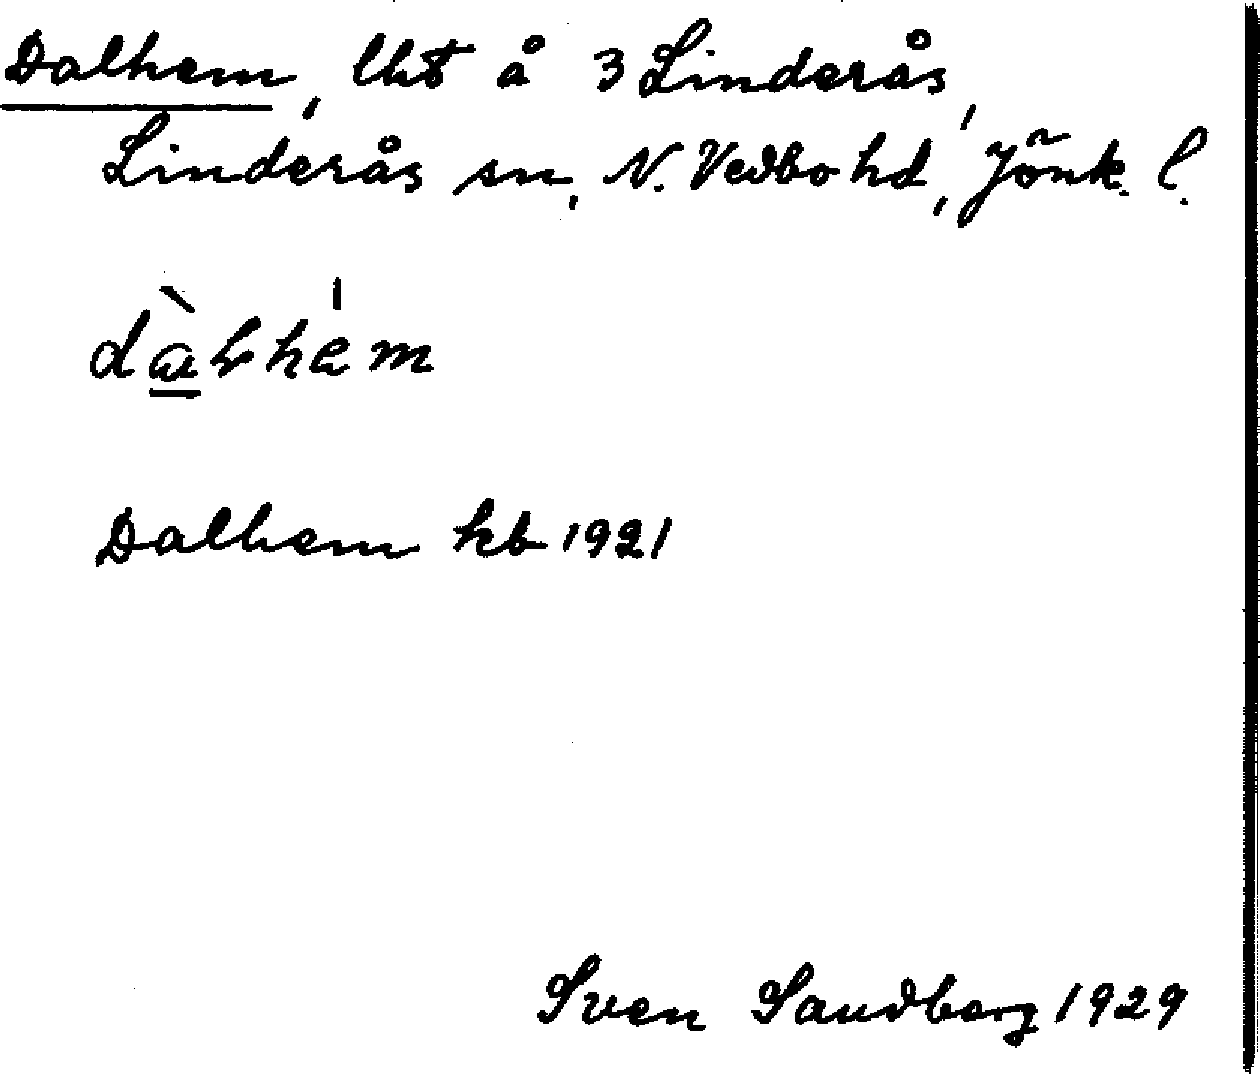 Dalhem, lht å 3 Linderås,
Linderås sn, N. Vedbo hd, Jönk. l.
Dalhem kb 1921
Sven Sandberg 1929